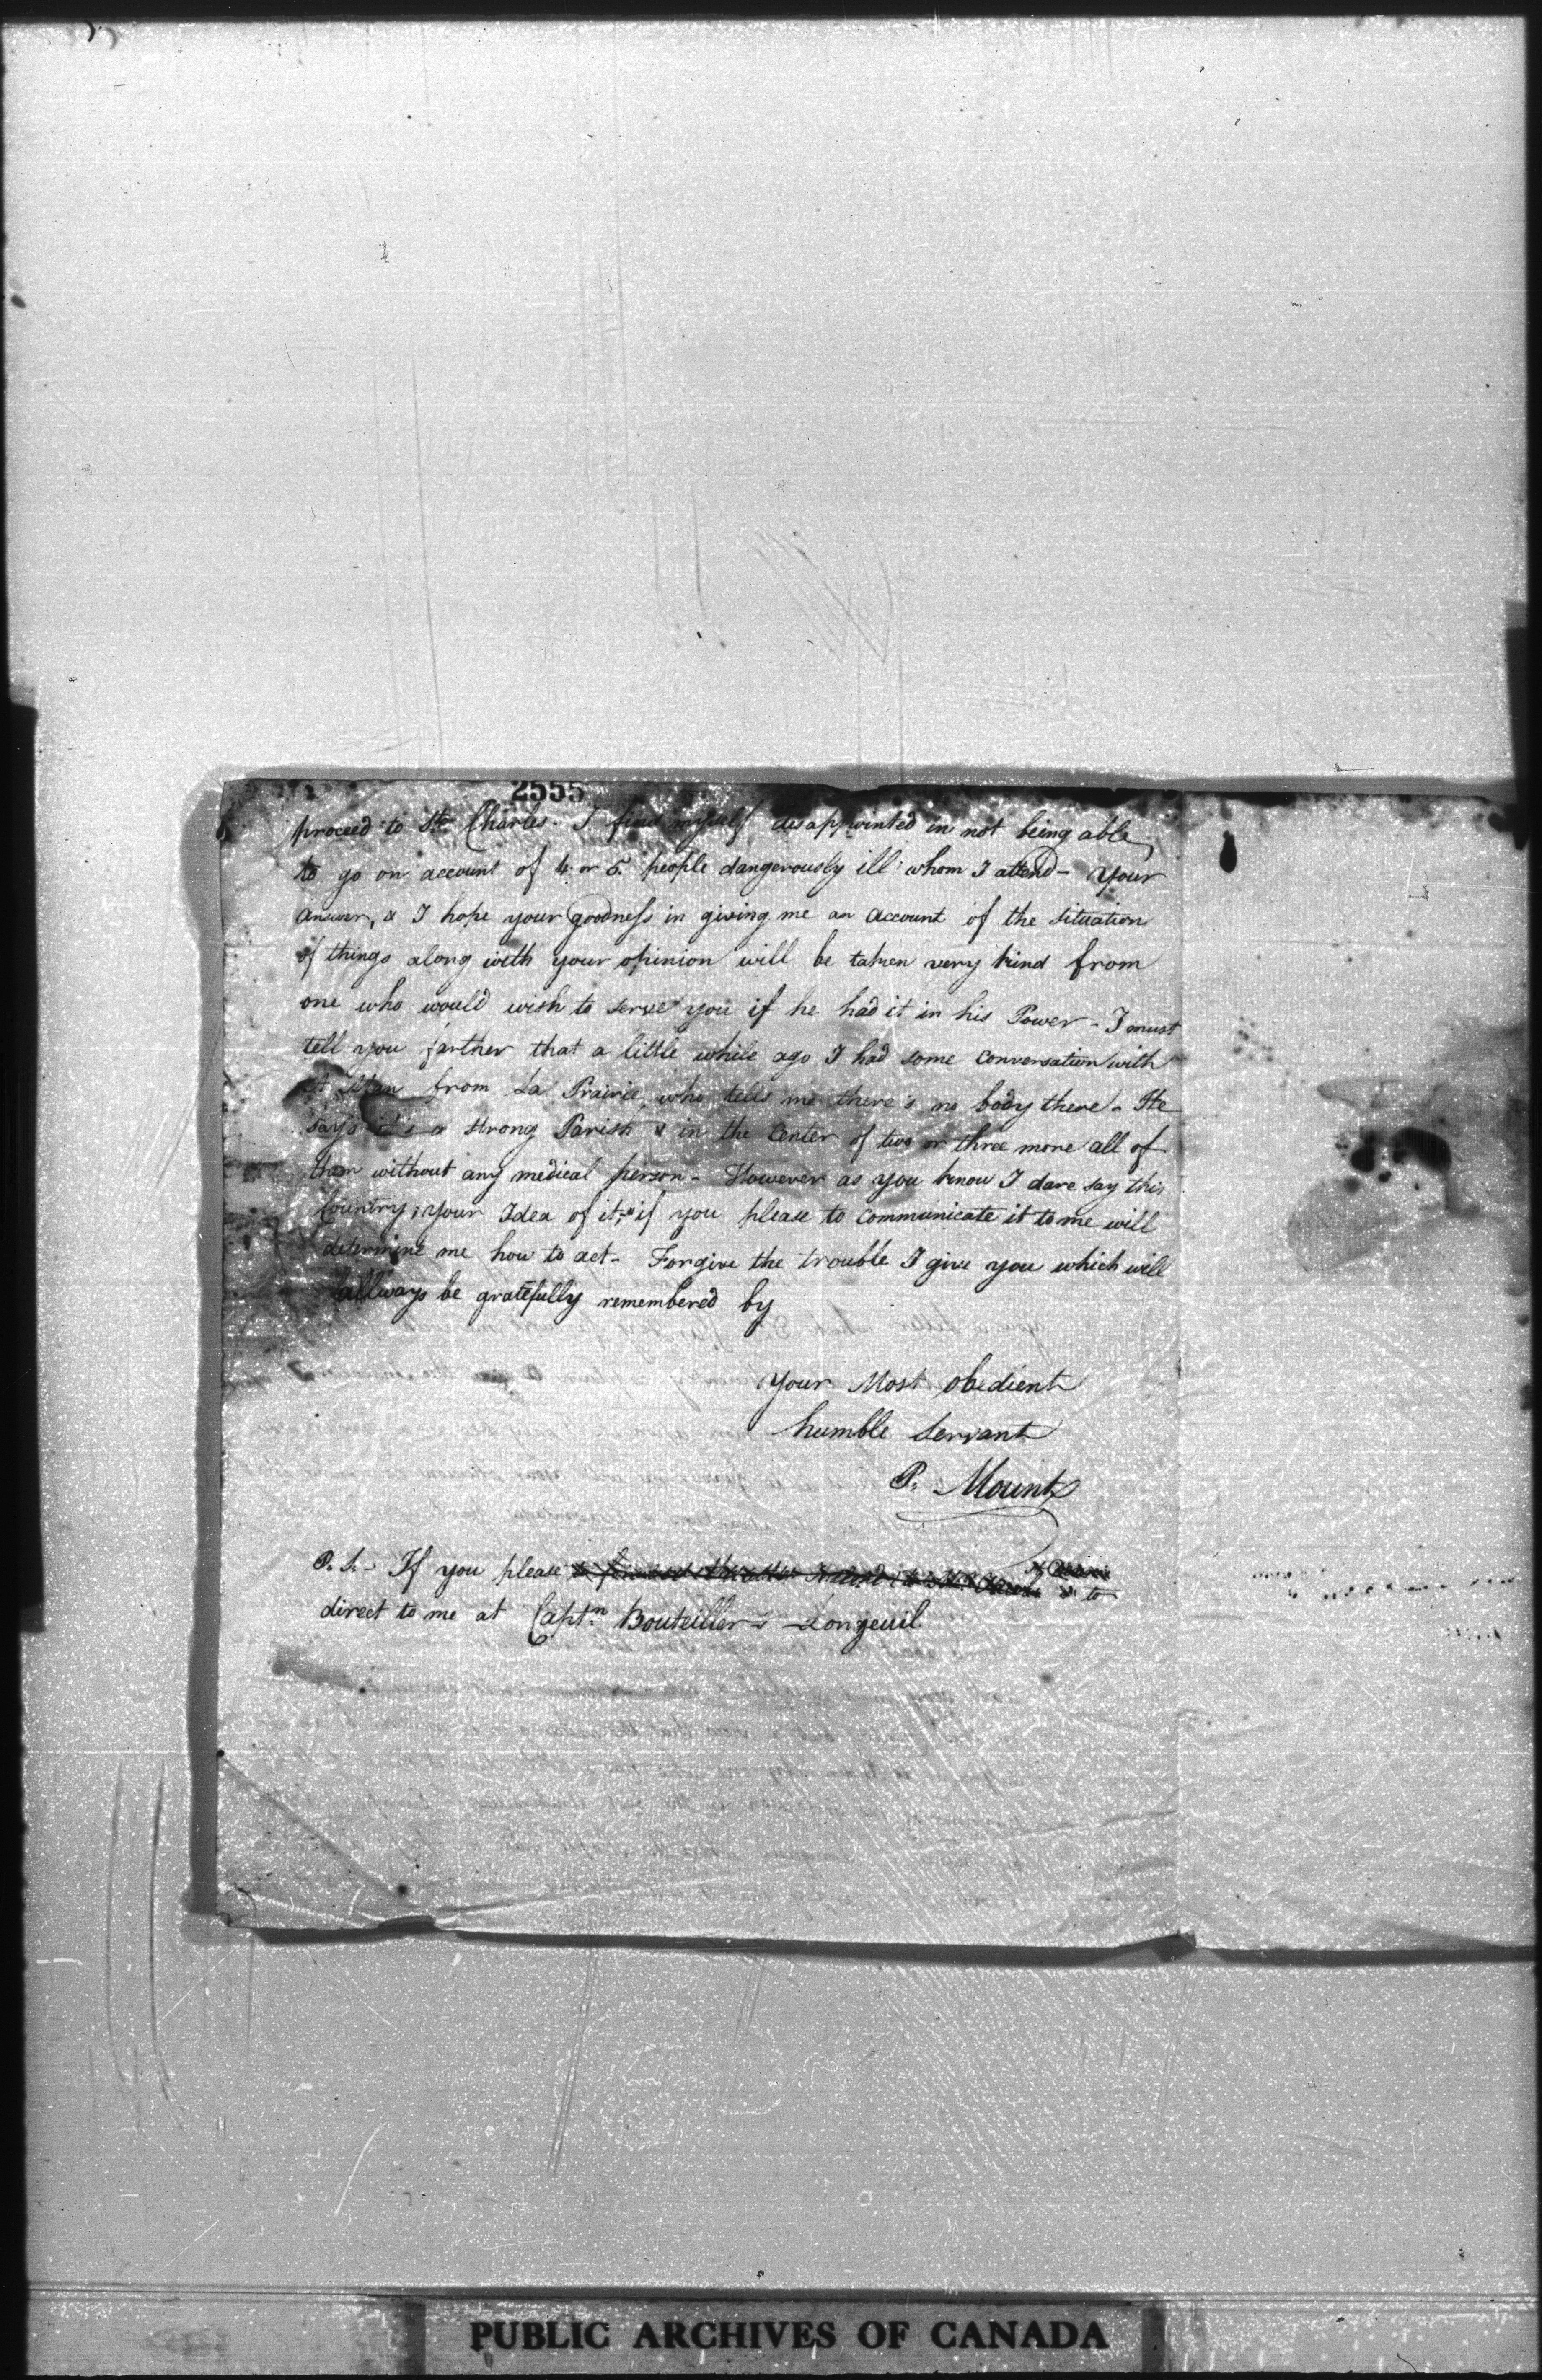 2555
proceed to St. Charles - I find myself disappointed in not being able
to go on account of 4 or 5 people dangerously ill whom I attend - Your
answer, & I hope your goodness in giving me an account of the situation
of things along with your opinion will be taken very kind from
one who would wish to serve you if he had it in his Power - I must
tell you farther that a little while ago I had some conversation with
A Man from La Prairie, who tells me there's no body there - He
says it's a strong Parish & in the Center of two or three more all of
them without any medical person - However as you know I dare say this
Country, your Idea of it, if you please to communicate it to me will
determine me how to act - Forgive the trouble I give you which will
allways be gratefully remembered by
Your Most obedient
humble Servant
P. Mount
P. S. - If you please to
direct to me at Captn. Bouteiller's Longeuil
PUBLIC ARCHIVES OF CANADA